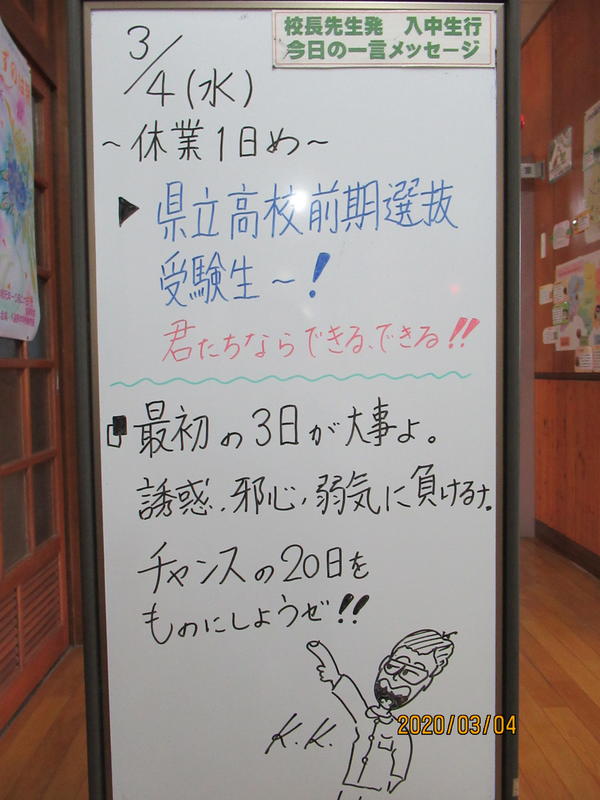 校長先生発 入中生行
今日の一言メッセージ
3/4(水)
~休業1日め~
▶県立高校前期選抜
受験生~!
君たちならできる、できる!!
最初の3日が大事よ。
誘惑、邪心、弱気に負けるな。
チャンスの20日を
ものにしようぜ!!
K.K.
2020/03/04